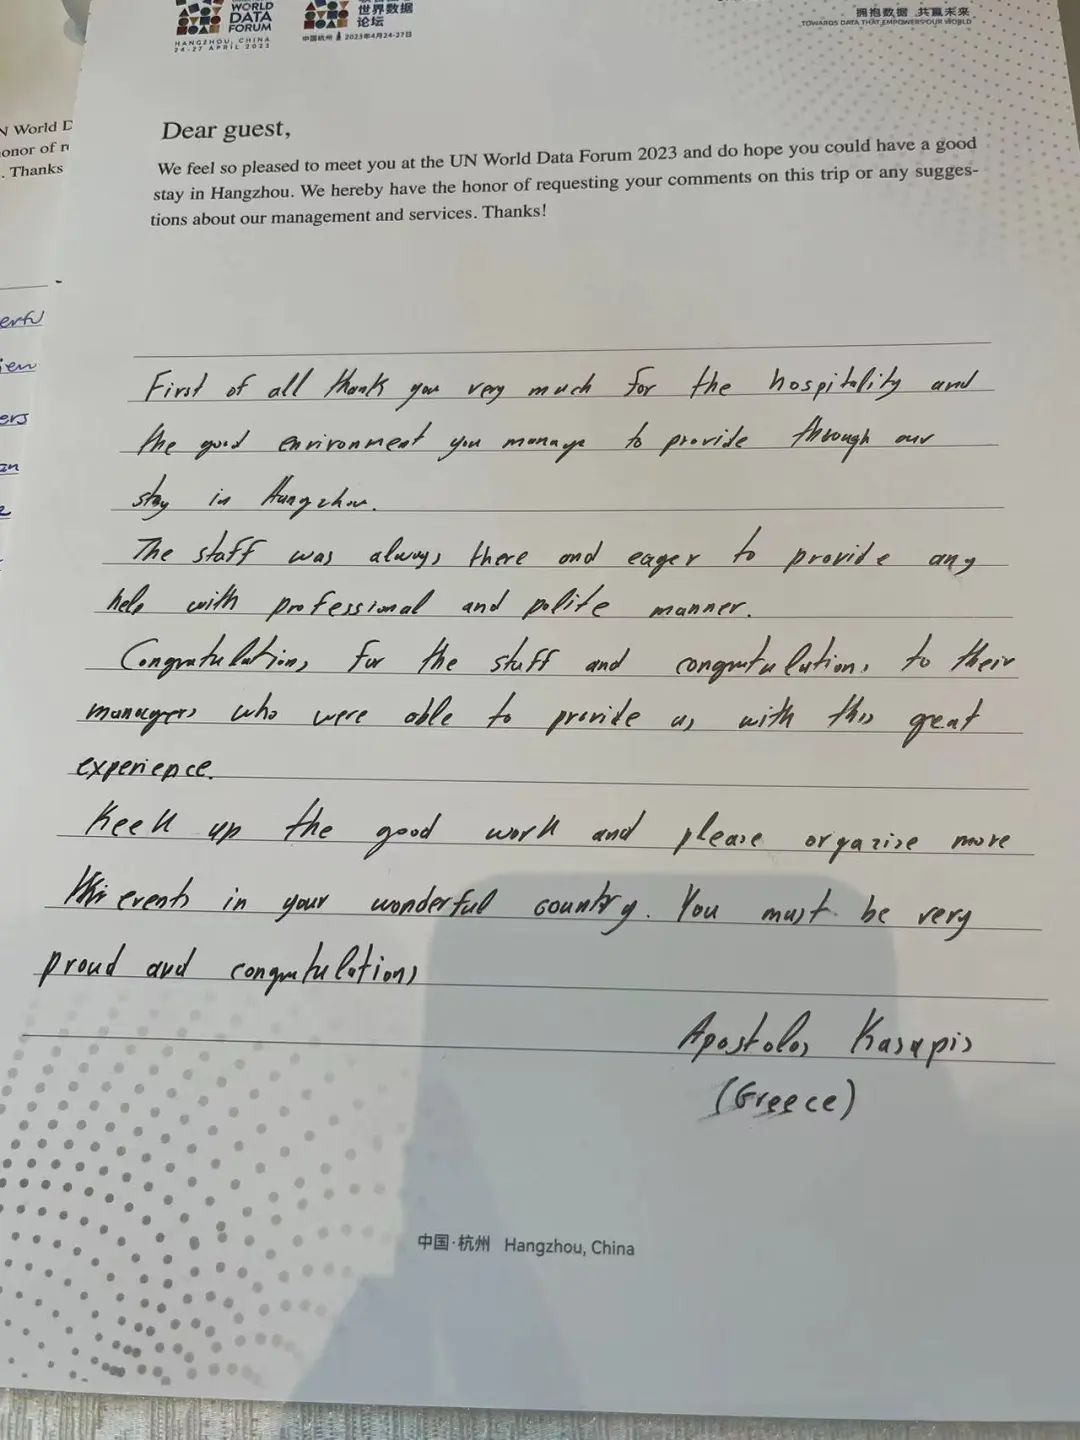 WORLD
DATA
FORUM
HANGZHOU, CHINA
24-27 APRIL 2023
世界数据
论坛
中国杭州 2023年4月24-27日
拥抱数据 共赢未来
TOWARDS DATA THAT EMPOWERS OUR WORLD
N World D
onor of r
. Thanks
Dear guest,
We feel so pleased to meet you at the UN World Data Forum 2023 and do hope you could have a good
stay in Hangzhou. We hereby have the honor of requesting your comments on this trip or any sugges-
tions about our management and services. Thanks!
First of all thank you very much for the hospitality and
the good environment you manage to provide through our
stay in Hangzhou.
The staff was always there and eager to provide any
help with professional and polite manner.
Congratulations for the staff and congratulations to their
managers who were able to provide us with this great
experience.
Keep up the good work and please organise more
events in your wonderful country. You must be very
proud and congratulations
Apostolos Kasapis
(Greece)
中国·杭州 Hangzhou, China